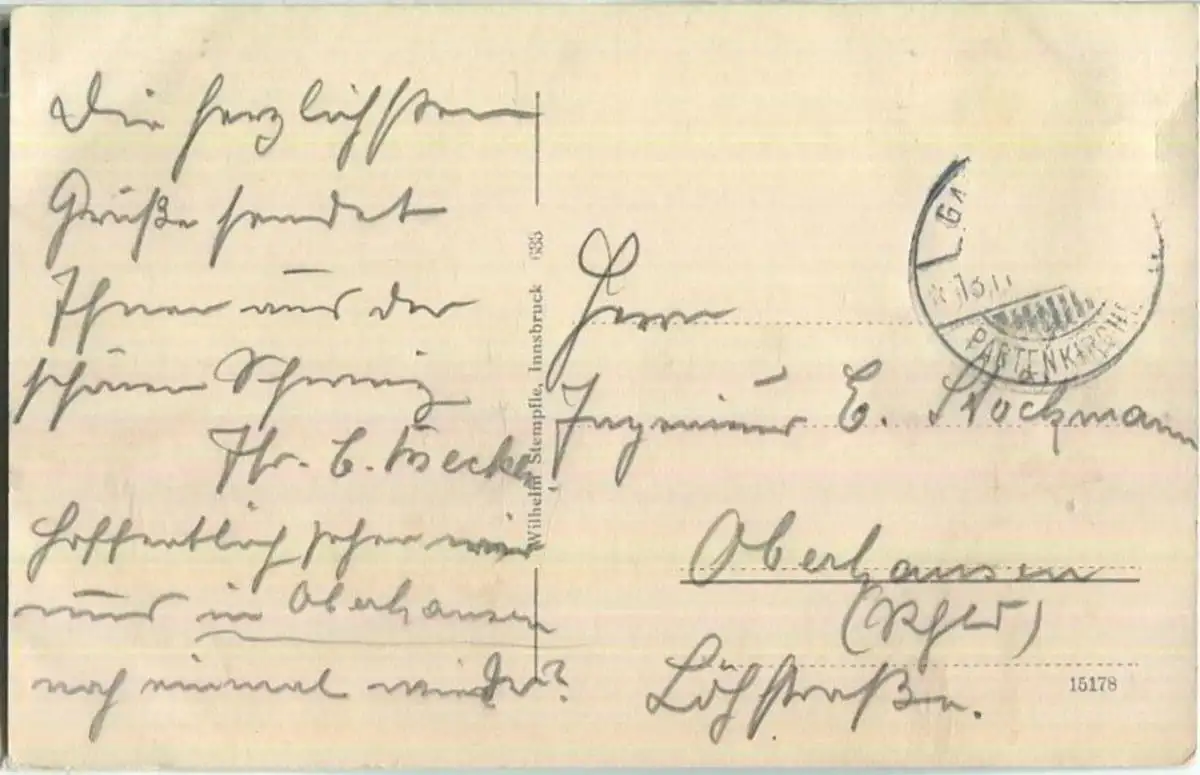 Die herzlichsten
Grüße sendet
Ihnen aus der
schönen
Ihr. E. Becker
Hoffentlich sehen wir
uns in Oberhausen
noch einmal wieder?
Wilhelm Stempfle, Innsbruck 635
GA
13.11
PARTENKIRCH
Herrn
Ingenieur E. Stockmann
Oberhausen
(Rhld)
Löhstraße.
15178